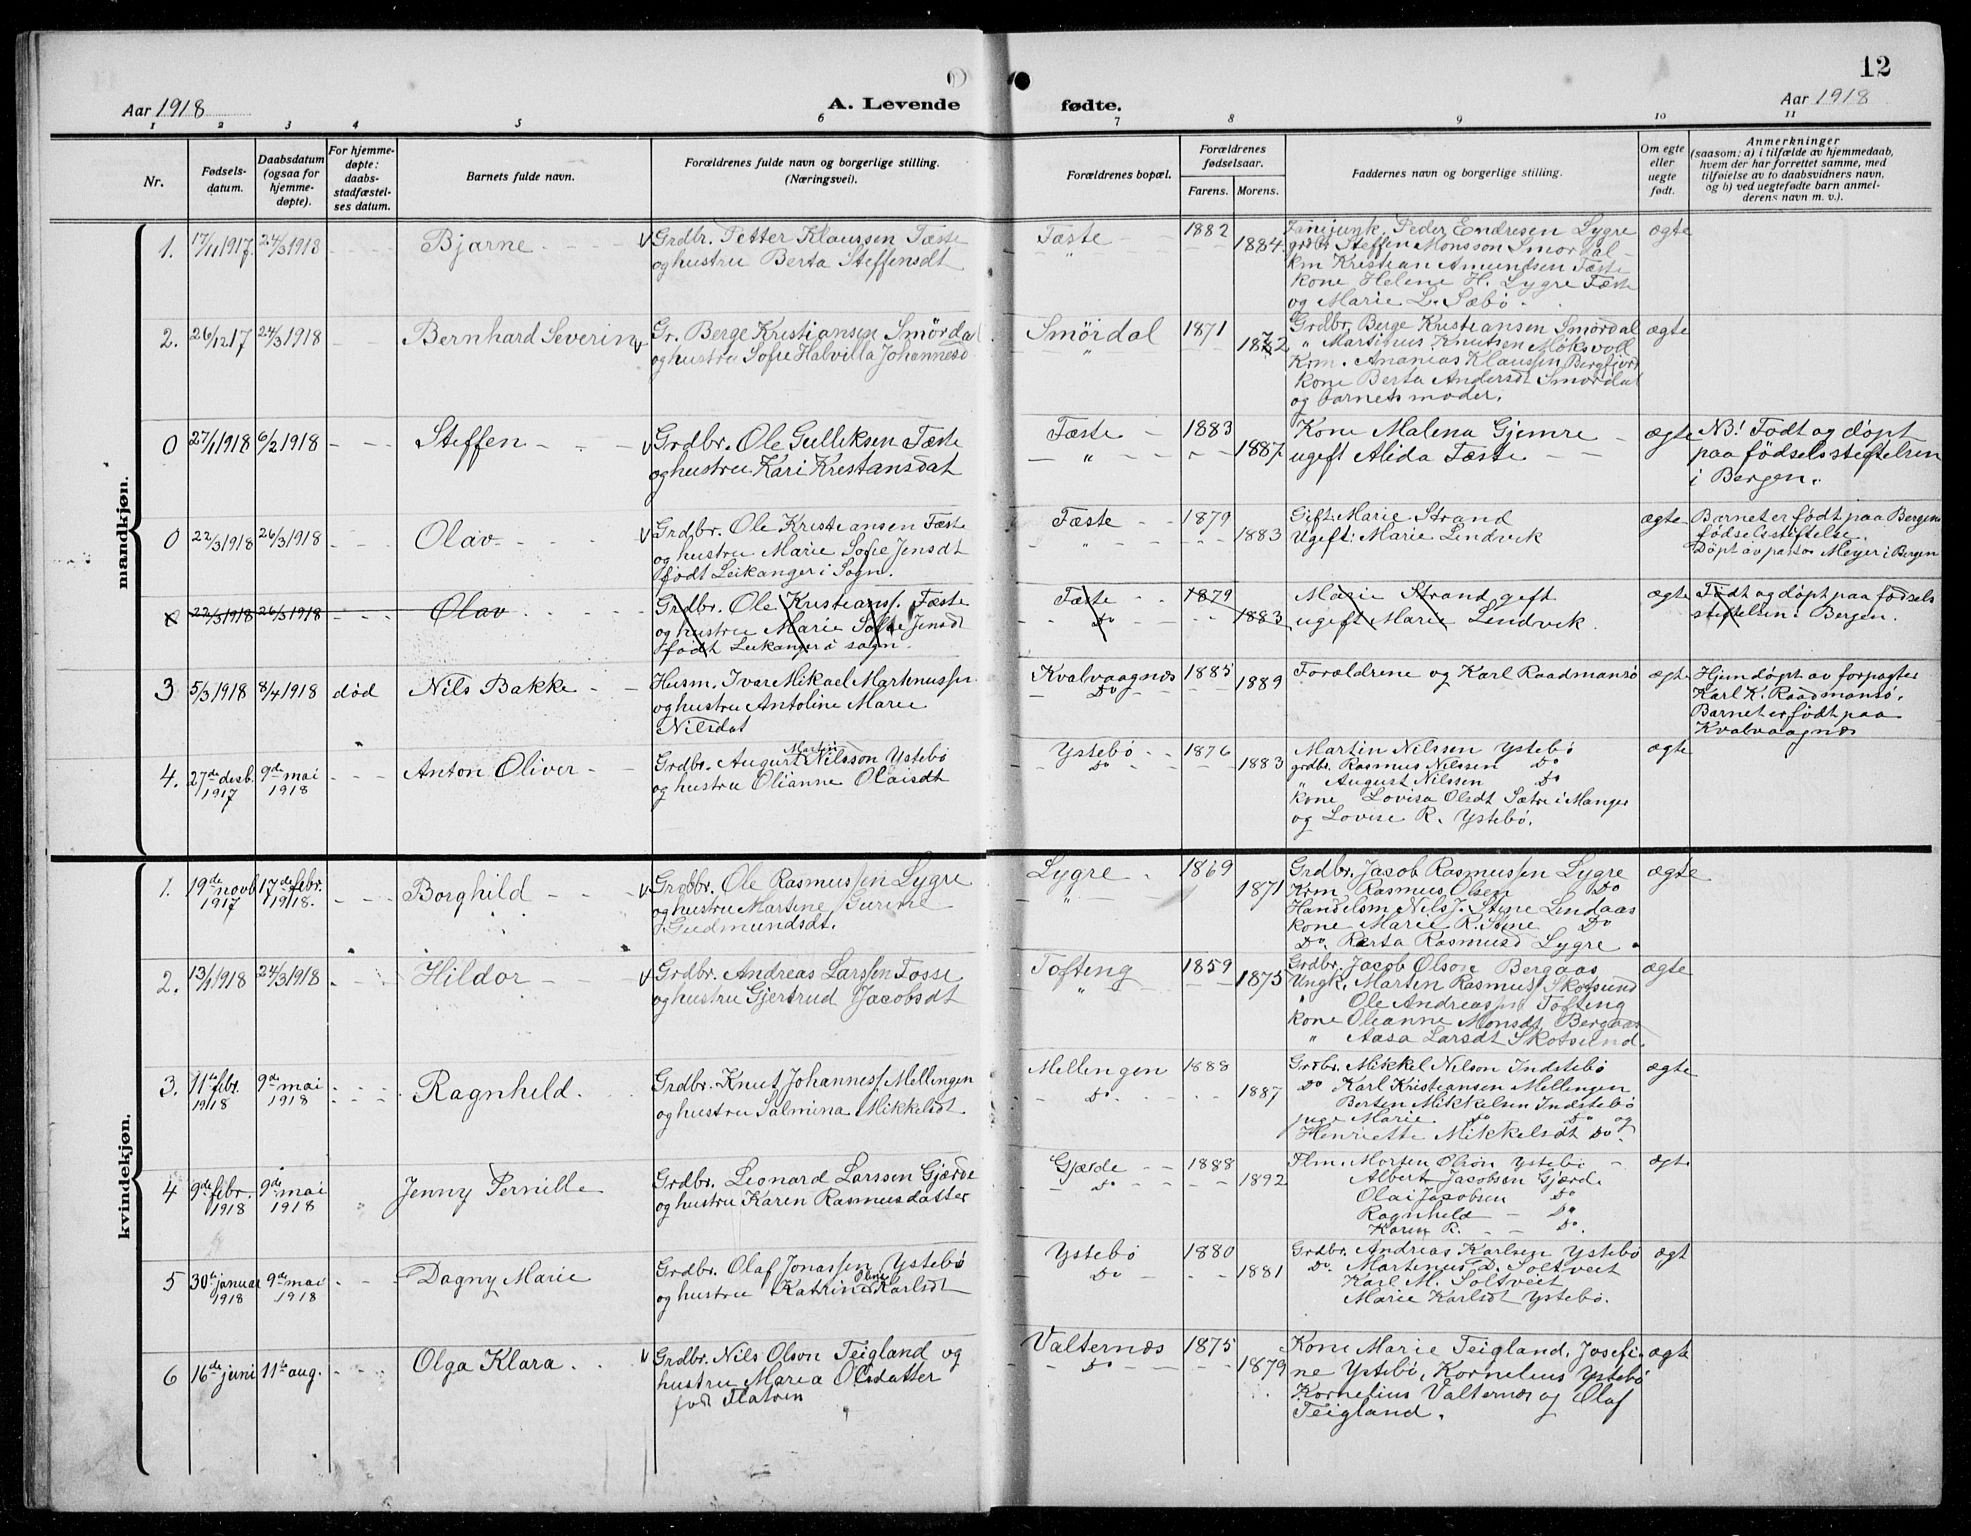 12
Aar 1918
A. Levende
fødte.
Aar 1918
1 2 3 4 5 6 7 8 9 10 11
Nr.
Fødsels-
datum.
Daabsdatum
(ogsaa for
hjemme-
døpte).
For hjemme-
døpte:
daabs-
stadfæstel-
ses datum.
Barnets fulde navn.
Forældrenes fulde navn og borgerlige stilling.
(Næringsvei).
Forældrenes bopæl.
Forældrenes
fødselsaar.
Farens. Morens.
Faddernes navn og borgerlige stilling.
Om egte
eller
uegte
født.
Anmerkninger
(saasom: a) i tilfælde av hjemmedaab,
hvem der har forrettet samme, med
tilføielse av to daabsvidners navn,
og b) ved uegtefødte barn anmel-
derens navn m. v.).
mandkjøn.
1. 17/11 1917. 24/3 1918 Bjarne
Grdbr. Petter Klaussen Fæste
og hustru Berta Steffensdt
Fæste 1882 1884
Peder Endresen Lygre
grdbr Steffen Monsson Smørdal
km Kristian Amundsen Fæste
kone Helene H. Lygre Fæste
og Marie L. Sæbö.
ægte
2. 26/12 17 24/3 1918 Bernhard Severin
Gr. Berge Kristiansen Smördal
og hustru Sofie Halvilla Johannesd
Smördal 1871 1872
Grdbr. Berge Kristiansen Smørdal
" Martinus Knutsen Möksvoll
Krm. Ananias Klaussen Bergfjord
kone Berta Andersdt Smørdal
og barnets moder.
ægte
0 27/1 1918 6/2 1918 Steffen
Grdbr. Ole Gulliksen Fæste
og hustru Kari Krestansdat
Fæste 1883 1887
Kone Malena Gjemre
ugift Alida Fæste
ægte
NB! Födt og döpt
paa fødselsstiftelsen
i Bergen.
0 22/3 1918 26/3 1918 Olav
Grdbr. Ole Kristiansen Fæste
og hustru Marie Sofie Jensdt
født Leikanger i Sogn.
Fæste 1879 1883
Gift: Marie Strand
Ugift: Marie Lindvik
ægte
Barnet er født paa Bergens
fødselsstiftelse.
Döpt av pastor Meyer i Bergen
0 22/3 1918 26/3 1918 Olav
Grdbr. Ole Kristianss. Fæste
og hustru Marie Sofie Jensdt
født Leikanger i sogn.
Fæste 1879
Do 1883
Marie Strand gift
ugift Marie Lindvik.
ægte
Födt og döpt paa fødsels
stiftelsen i Bergen.
3 5/3 1918 8/4 1918 død Nils Bakke
Husm. Ivar Mikael Martinussen
og hustru Antoline Marie
Nilsdat
Kvalvaagnes 1885
Do 1889
Forældrene og Karl Raadmansö
ægte
Hjemdøpt av forpagter
Karl K. Raadmansö.
Barnet er født paa
Kvalvaagnæs
4. 27de desb. 1917 9de mai 1918 Anton Oliver
Grdbr. August Martin Nilsson Ystebö
og hustru Olianne Olaisdt
Ystebö 1876
Do 1883
Martin Nilssen Ystebö
grdbr. Rasmus Nilssen Do
" August Nilssen Do
kone Lovisa Olsdt Sætre i Manger
og Lovise R. Ystebö.
ægte
kvindekjøn.
1. 19de novb 1917 17de febr. 1918. Borghild
Grdbr. Ole Rasmussen Lygre
og hustru Martine Gurine
Gudmundsdt.
Lygre 1869 1871
Grdbr. Jacob Rasmussen Lygre
Krm Rasmus Olsen Do
Handelsm Nils J. Stene Lindaas
kone Marie R. Stene Do
Do. Berta Rasmusd Lygre
ægte
2. 13/1 1918 24/3 1918 Hildor
Grdbr. Andreas Larssen Fosse
og hustru Gjertrud Jacobsdt
Tofting 1859 1875
Grdbr. Jacob Olson Bergaas
Ungk. Martin Rasmus Skotsund
" Ole Andreassen Tofting
kone Olianne Monsdt Bergaas
" Aasa Larsdt Skotsund.
ægte
3. 11te febr. 1918 9de mai 1918 Ragnhild
Grdbr. Knut Johanness Mellingen
og hustru Salmina Mikkelsdt
Mellingen 1888
Do. 1887
Grdbr. Mikkel Nilson Indstebö
Do Karl Kristiansen Mellingen
Berten Mikkelsen Indstebö
pige Marie Do Do og
Henriette Mikkelsdt Do.
ægte
4 9de febr. 1918 9de mai 1918 Jenny Pernille
Grdbr. Leonard Larssen Gjærde
og hustru Karen Rasmusdatter
Gjælde 1888
Do 1892
Flm. Morten Olson Ystebö
Albert Jacobsen Gjærd.
Olai Jacobsen Do
Ragnhild Do
Karen R. Do.
ægte
5 30te januar 1918 9de mai 1918 Dagny Marie
Grdbr. Olaf Jonassen Ystebø
og hustru Katrine Oline Karlsdt
Ystebö 1880
Do 1881
Grdbr. Andreas Karlsen Ystebö
Do. Martinus D. Soltveit
Karl M. Soltveit
Marie Karlsdt Ystebö.
ægt
6 16de juni 11te aug. Olga Klara.
Grdbr. Nils Olson Teigland og
hustru Maria Olsdatter
født Flatøen
Valternæs 1875
Do 1879
Kone Marie Teigland, Josefi-
ne Ystebö, Kornelius Ystebö
Kornelius Valternæs og Olaf
Teigland.
ægte